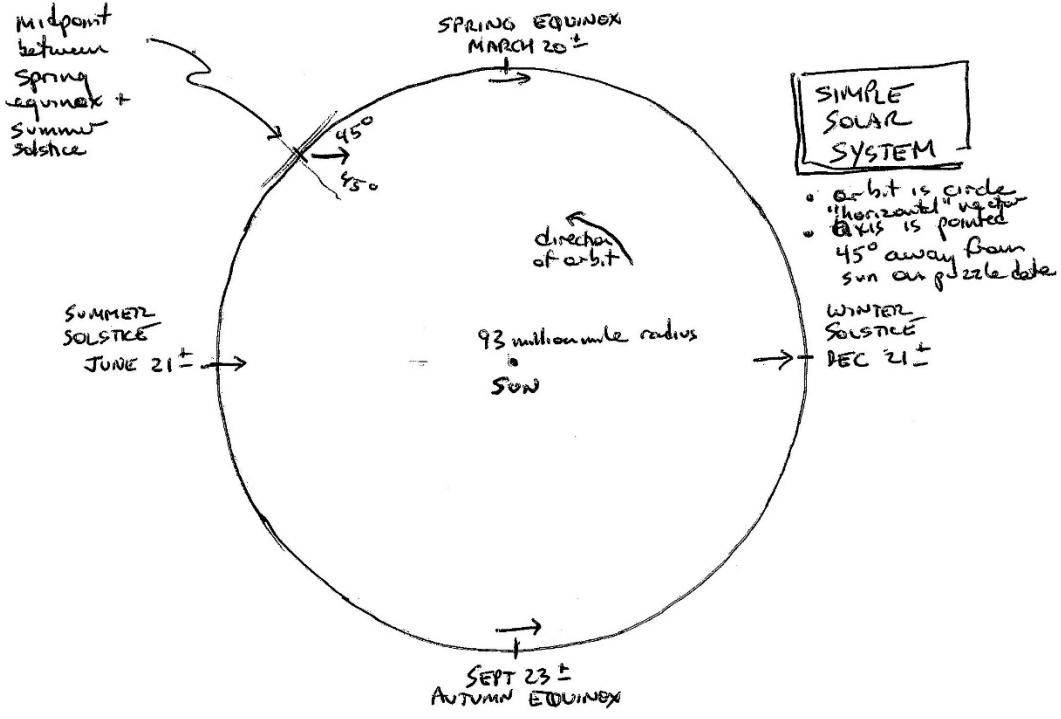 midpoint
between
spring
equinox +
summer
solstice
SPRING EQUINOX
MARCH 20 ±
45°
45°
SIMPLE
SOLAR
SYSTEM
• orbit is circle
"horizontal" vector
• axis is pointed
45° away from
sun on puzzle date
direction
of orbit
SUMMER
SOLSTICE
JUNE 21 ±
93 million mile radius
SUN
WINTER
SOLSTICE
DEC 21 ±
SEPT 23 ±
AUTUMN EQUINOX